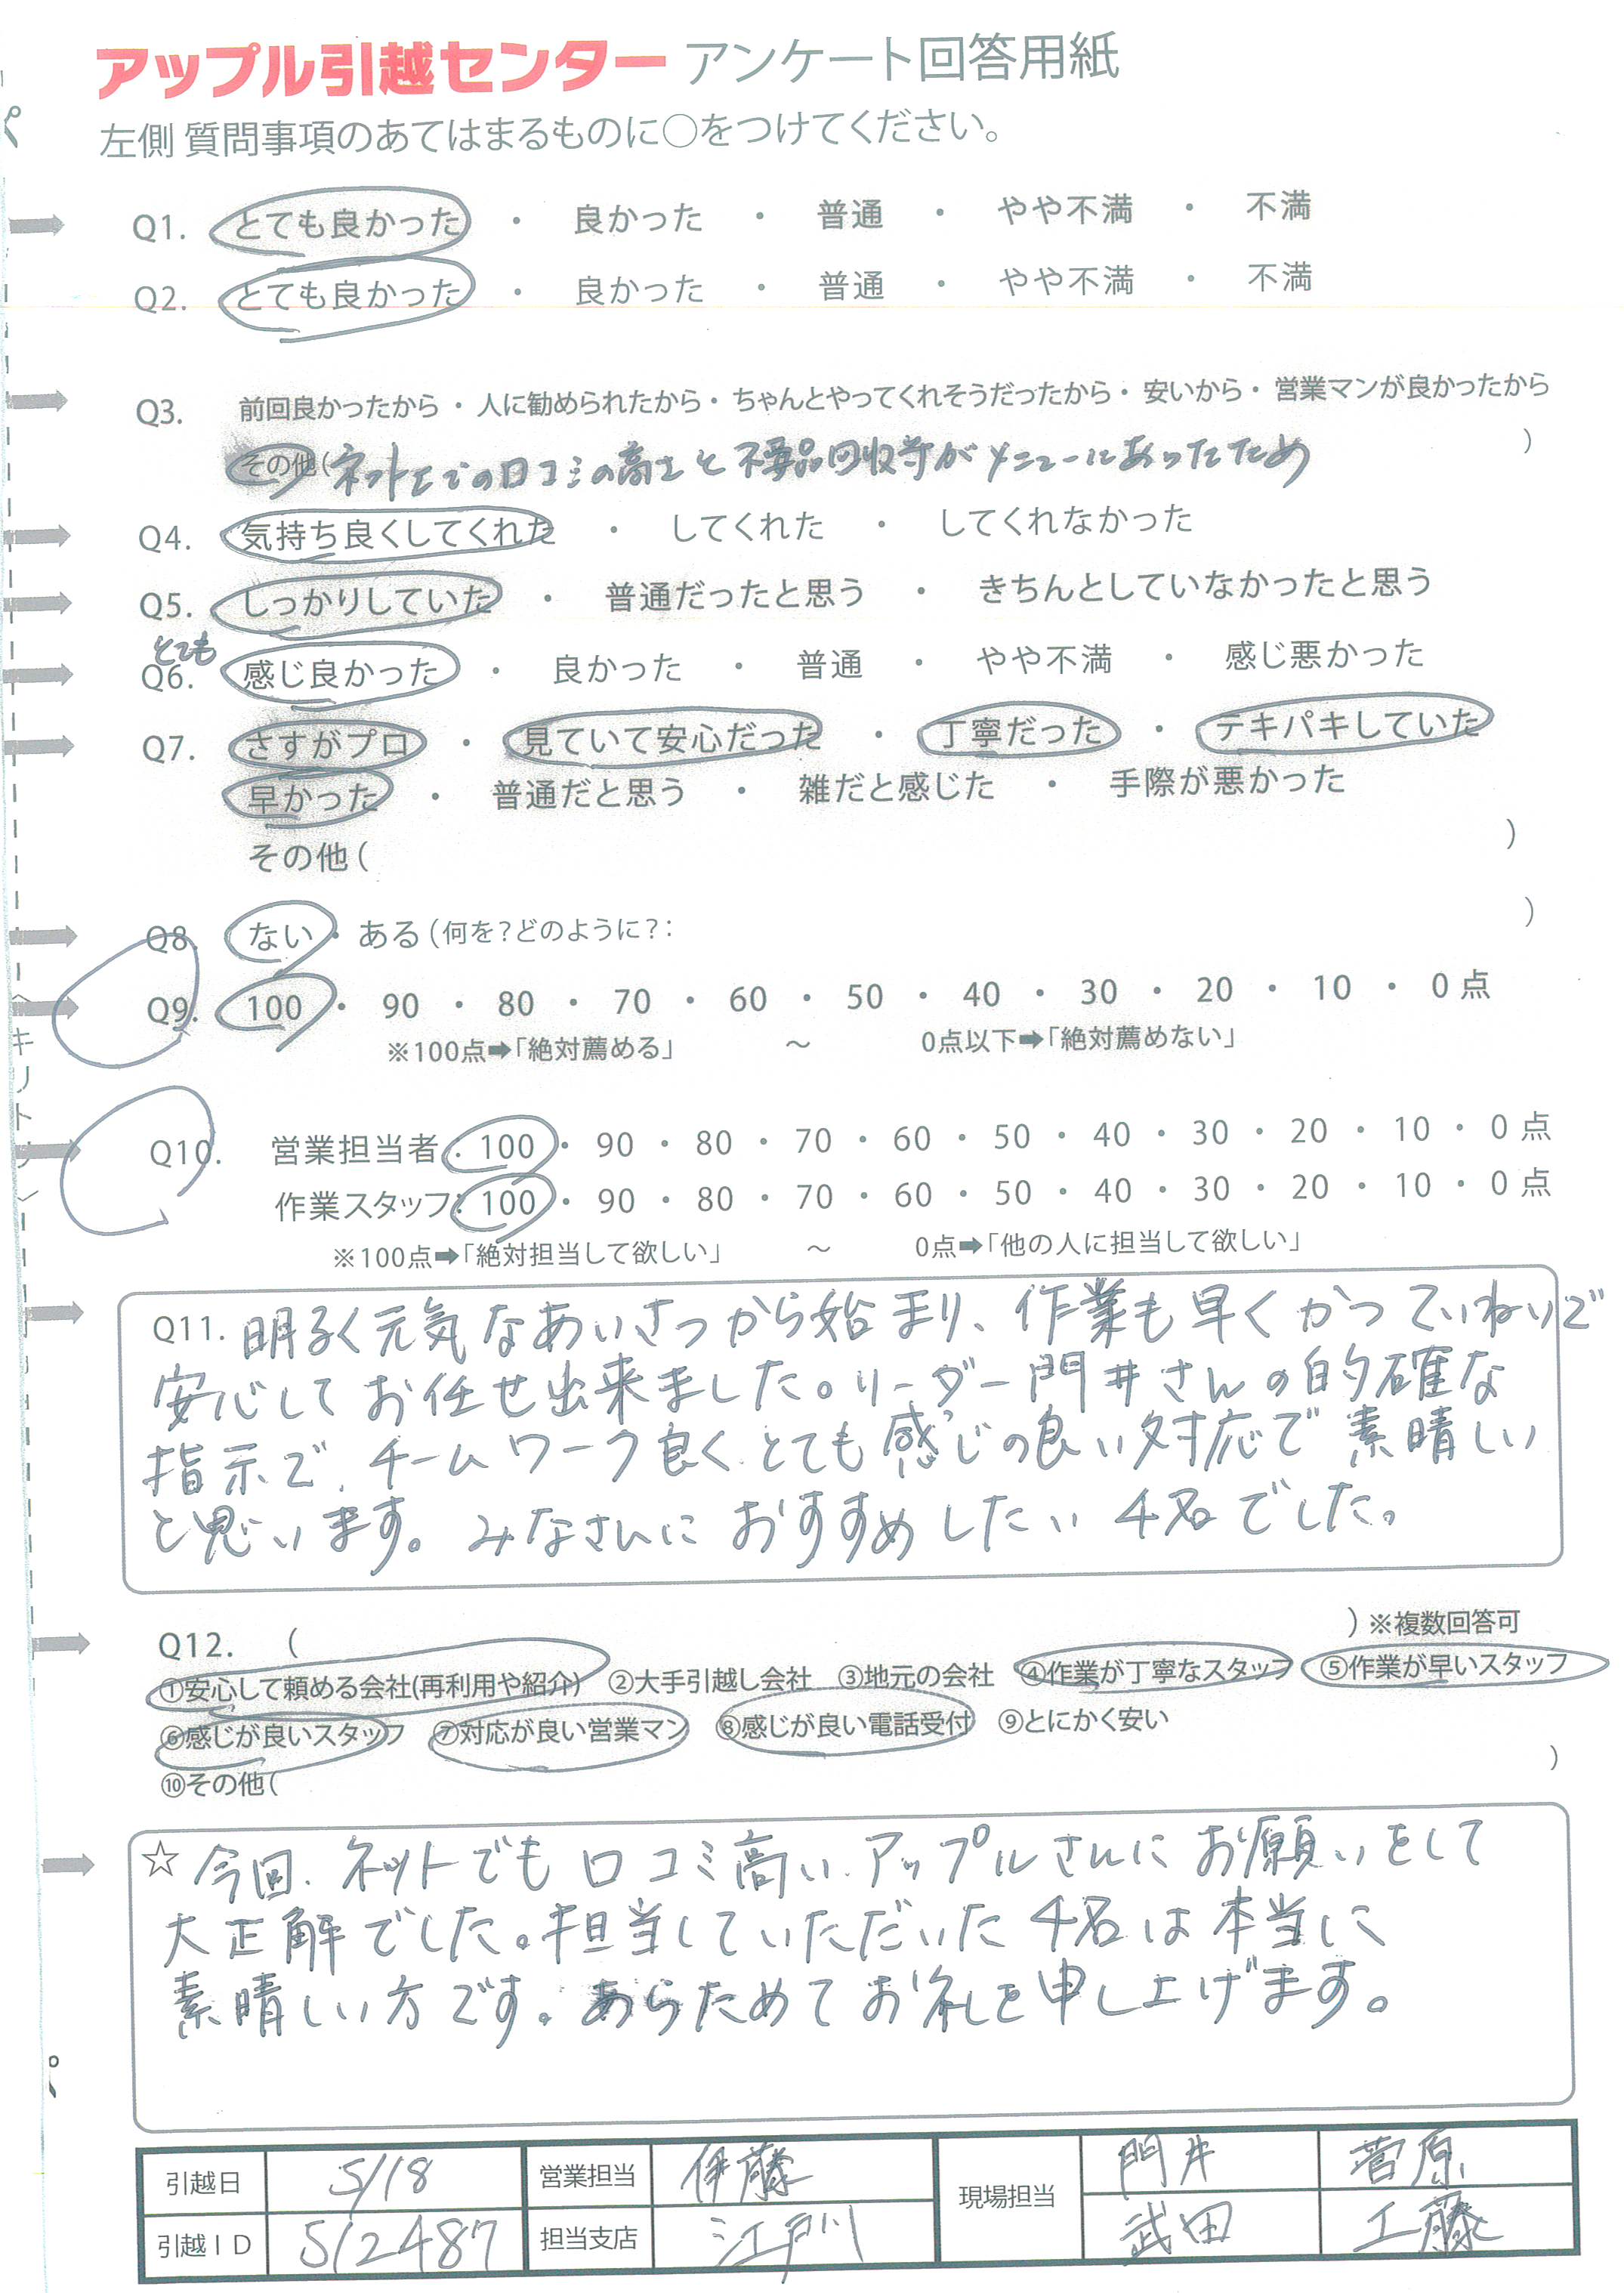 アップル引越センター アンケート回答用紙
左側 質問事項のあてはまるものに○をつけてください。
Q1. とても良かった ・ 良かった ・ 普通 ・ やや不満 ・ 不満
Q2. とても良かった ・ 良かった ・ 普通 ・ やや不満 ・ 不満
Q3. 前回良かったから・人に勧められたから・ちゃんとやってくれそうだったから・安いから・営業マンが良かったから
その他(ネット上での口コミの高さと不要品回収等がメニューにあったため)
Q4. 気持ち良くしてくれた ・ してくれた ・ してくれなかった
Q5. しっかりしていた ・ 普通だったと思う ・ きちんとしていなかったと思う
とても
Q6. 感じ良かった ・ 良かった ・ 普通 ・ やや不満 ・ 感じ悪かった
Q7. さすがプロ ・ 見ていて安心だった ・ 丁寧だった ・ テキパキしていた
早かった ・ 普通だと思う ・ 雑だと感じた ・ 手際が悪かった
その他( )
Q8. ない・ある(何を?どのように?: )
Q9. 100 ・ 90 ・ 80 ・ 70 ・ 60 ・ 50 ・ 40 ・ 30 ・ 20 ・ 10 ・ 0点
※100点➡「絶対薦める」 ~ 0点以下➡「絶対薦めない」
キリトリ
Q10. 営業担当者:100・90・80・70・60・50・40・30・20・10・0点
作業スタッフ:100・90・80・70・60・50・40・30・20・10・0点
※100点➡「絶対担当して欲しい」 ~ 0点➡「他の人に担当して欲しい」
Q11. 明るく元気なあいさつから始まり、作業も早くかつていねいで
安心してお任せ出来ました。リーダー門井さんの的確な
指示で、チームワーク良くとても感じの良い対応で素晴しい
と思います。みなさんにおすすめしたい4名でした。
Q12. ( )※複数回答可
①安心して頼める会社(再利用や紹介) ②大手引越し会社 ③地元の会社 ④作業が丁寧なスタッフ ⑤作業が早いスタッフ
⑥感じが良いスタッフ ⑦対応が良い営業マン ⑧感じが良い電話受付 ⑨とにかく安い
⑩その他( )
☆今回、ネットでも口コミ高い、アップルさんにお願いをして
大正解でした。担当していただいた4名は本当に
素晴しい方です。あらためてお礼を申し上げます。
引越日 5/18 営業担当 伊藤 現場担当 門井 菅原
引越ID 512487 担当支店 江戸川 武田 工藤